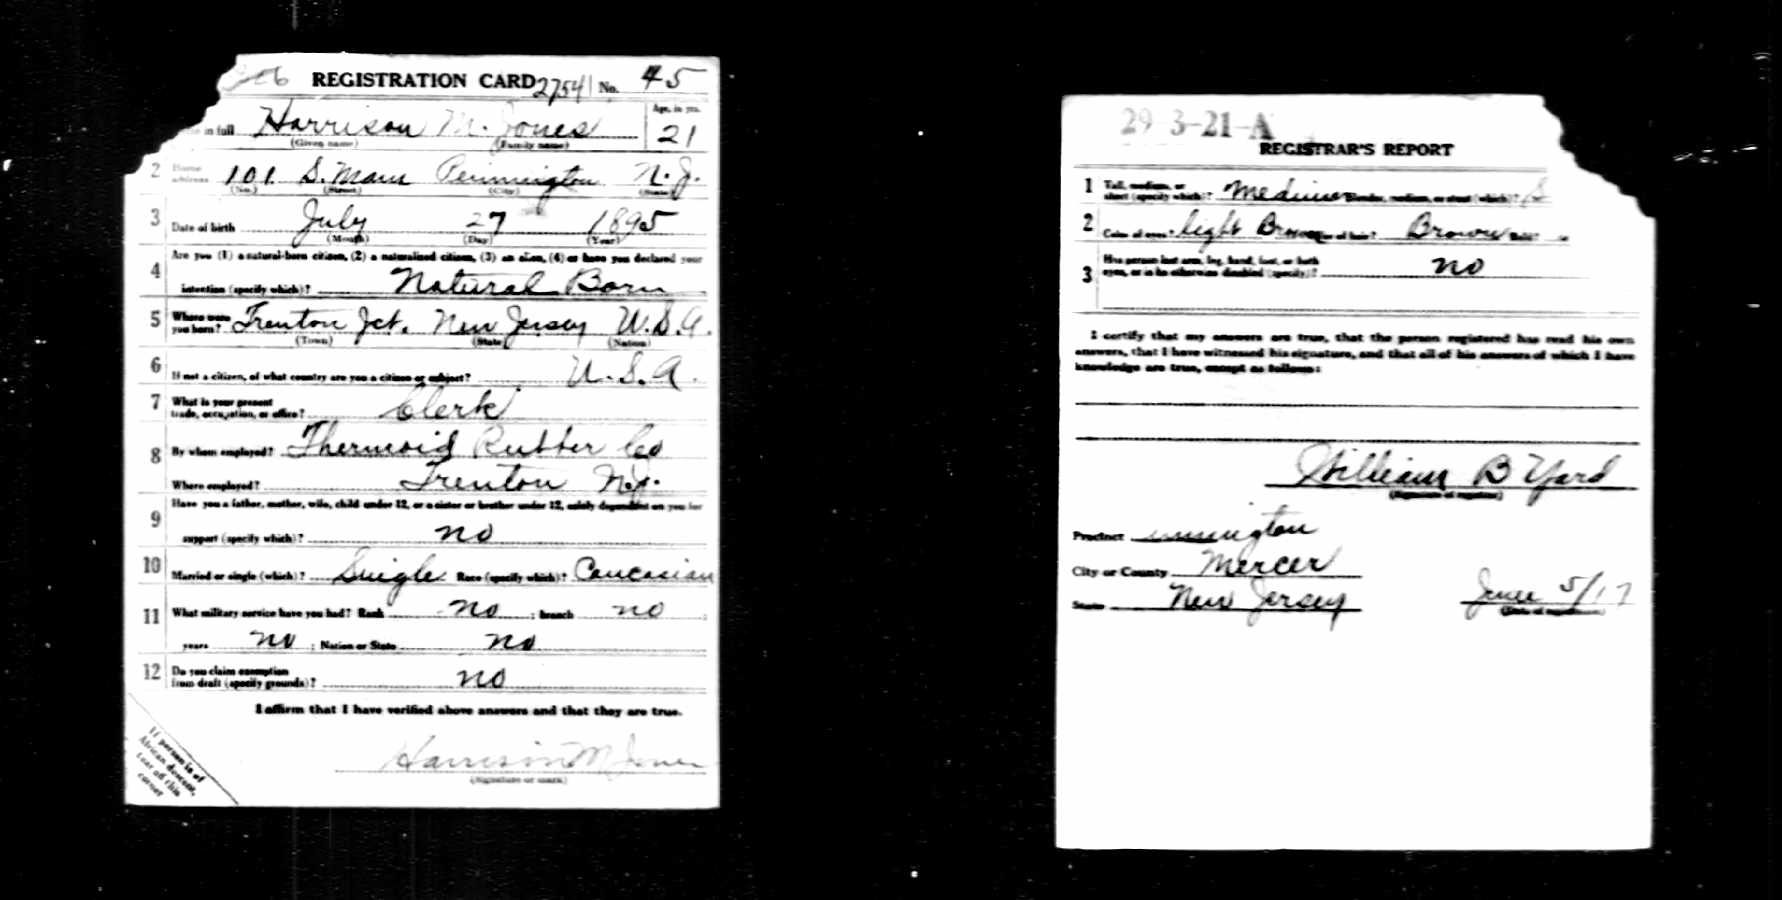 REGISTRATION CARD 2754 No. 45
in full Harrison M. Jones Age, in yrs. 21
(Given name) (Family name)
2 Home address 101 S. Main Pennington N.J.
(No.) (Street) (City) (State)
3 Date of birth July 27 1895
(Month) (Day) (Year)
Are you (1) a natural-born citizen, (2) a naturalized citizen, (3) an alien, (4) or have you declared your
4 intention (specify which)? Natural Born
5 Where were you born? Trenton Jct. New Jersey U.S.A.
(Town) (State) (Nation)
6 If not a citizen, of what country are you a citizen or subject? U.S.A.
7 What is your present trade, occupation, or office? Clerk
8 By whom employed? Thermoid Rubber Co
Where employed? Trenton N.J.
Have you a father, mother, wife, child under 12, or a sister or brother under 12, solely dependent on you for
9 support (specify which)? no
10 Married or single (which)? Single Race (specify which)? Caucasian
11 What military service have you had? Rank no ; branch no ;
years no ; Nation or State no
12 Do you claim exemption from draft (specify grounds)? no
I affirm that I have verified above answers and that they are true.
Harrison M Jones
(Signature or mark)
If person is of
African descent,
tear off this
corner
29 3-21-A
REGISTRAR'S REPORT
1 Tall, medium, or short (specify which)? Medium Slender, medium, or stout (which)? S
2 Color of eyes? light Brown Color of hair? Brown Bald?
3 Has person lost arm, leg, hand, foot, or both eyes, or is he otherwise disabled (specify)? no
I certify that my answers are true, that the person registered has read his own
answers, that I have witnessed his signature, and that all of his answers of which I have
knowledge are true, except as follows:
William B Yard
(Signature of registrar)
Precinct Pennington
City or County Mercer
State New Jersey June 5/17
(Date of registration)